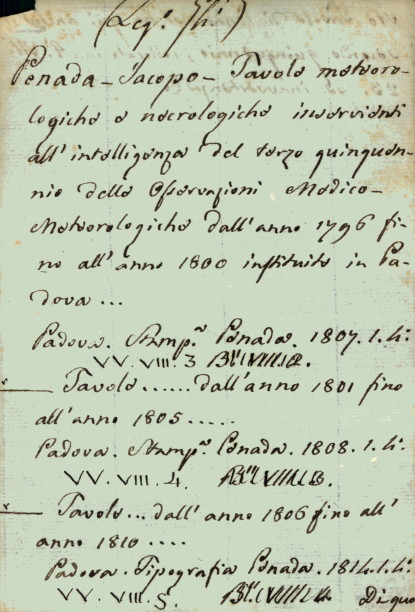 Penada – Jacopo – Tavole meteoro-
logiche e necrologiche inservienti
all' intelligenza del terzo quinquen-
nio delle Osservazioni Medico-
Meteorologiche dall' anno 1796 fi-
no all' anno 1800 instituite in Pa-
dova ...
Padova. Stamp.ª Penada. 1807. 1. 4:
VV. VIII. 3
Tavole ...... dall' anno 1801 fino
all' anno 1805 .....
Padova. Stamp.ª Penada. 1808. 1. 4:
VV. VIII. 4.
Tavole ... dall' anno 1806 fino all'
anno 1810 ....
Padova. Tipografia Penada. 1814. 1. 4:
VV. VIII. 5.